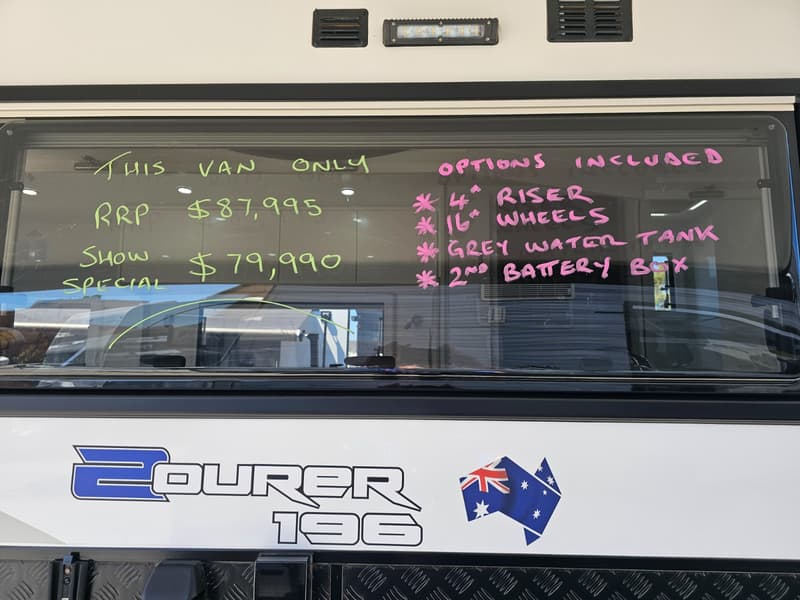 THIS VAN ONLY
RRP $87,995
SHOW SPECIAL $79,990
OPTIONS INCLUDED
* 4" RISER
* 16" WHEELS
* GREY WATER TANK
* 2ND BATTERY BOX
2OURER
196